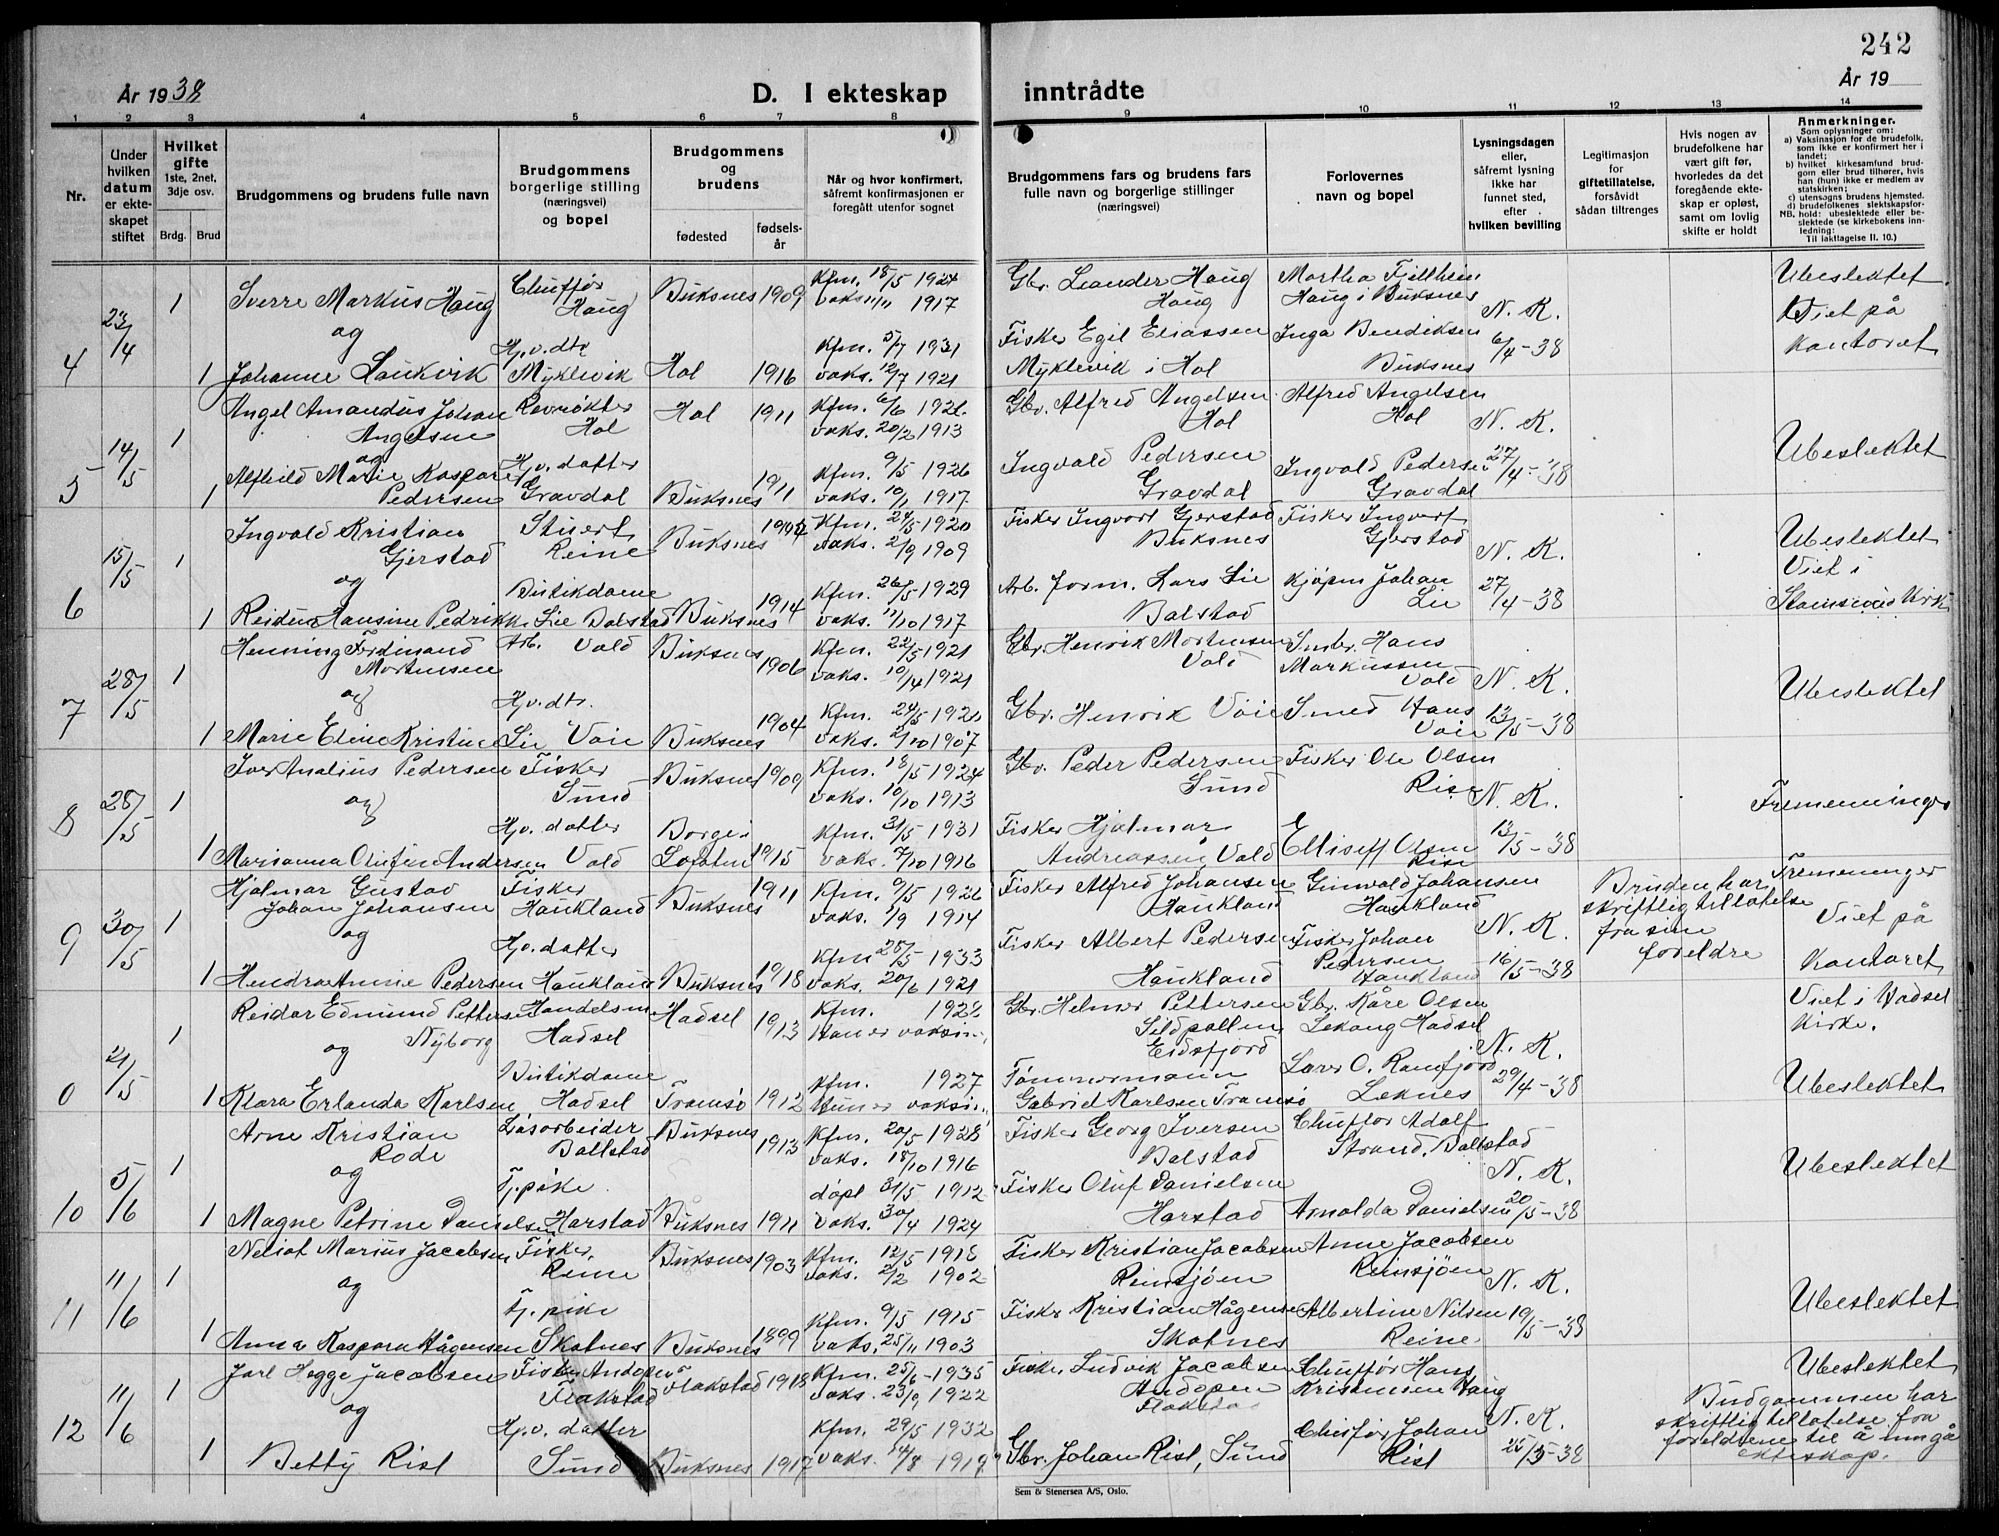 242
År 1938
D. I ekteskap inntrådte
År 19
1 2 3 4 5 6 7 8 9 10 11 12 13 14
Nr.
Under hvilken datum er ekte-skapet stiftet
Hvilket gifte 1ste, 2net, 3dje osv.
Brdg. Brud
Brudgommens og brudens fulle navn
Brudgommens borgerlige stilling (næringsvei) og bopel
Brudgommens og brudens
fødested
fødsels-år
Når og hvor konfirmert, såfremt konfirmasjonen er foregått utenfor sognet
Brudgommens fars og brudens fars fulle navn og borgerlige stillinger (næringsvei)
Forlovernes navn og bopel
Lysningsdagen eller, såfremt lysning ikke har funnet sted, efter hvilken bevilling
Legitimasjon for giftetillatelse, forsåvidt sådan tiltrenges
Hvis nogen av brudefolkene har vært gift før, hvorledes da det foregående ekte-skap er opløst, samt om lovlig skifte er holdt
Anmerkninger.
Som oplysninger om:
a) Vaksinasjon for de brudefolk, som ikke er konfirmert her i landet;
b) hvilket kirkesamfund brud-gom eller brud tilhører, hvis han (hun) ikke er medlem av statskirken;
c) utensogns brudens hjemsted.
d) brudefolkenes slektskapsfor-hold: ubeslektede eller be-slektede (se kirkebokens inn-ledning:
NB.
Til iakttagelse II. 10.)
4 23/4 1 Sverre Markus Haug Chuffør Haug Buksnes 1909 Kfm. 18/5 1924 vaks 11/11 1917 Gbr. Leander Haug Haug Martha Fjellheim Haug i Buksnes N. K. Ubeslektet. Viet på
og
1 Johanne Laukvik Hjv. dtr Myklevik Hol 1916 Kfm. 5/7 1931 vaks. 12/7 1921 Fisker Egil Eliassen Myklevik i Hol Inga Bendiksen Buksnes 6/4-38 kontoret
5 14/5 1 Angel Amandus Johan Angelsen Revrøkter Hol Hol 1911 Kfm. 6/6 192 vaks. 20/2 1913 Gbr. Alfred Angelsen Hol Alfred Angelsen Hol N. K. Ubeslektet
og
1 Alfhild Marie Kaspara Pedersen Hjv. datter Gravdal Buksnes 1911 Kfm. 9/5 1926 vaks. 10/1 1917 Ingvald Pedersen Gravdal Ingvald Pedersen Gravdal 27/4-38
6 15/5 1 Ingvald Kristian Gjerstad Stuert Reine Buksnes Kfm. 24/5 1920 vaks. 2/9 1909 Fisker Ingvart Gjerstad Buksnes Fisker Ingvart Gjerstad N. K. Ubeslektet Viet i
og
1 Reidun Hansine Pedrikke Lie Butikdame Balstad Buksnes 1914 Kfm. 26/5 1929 vaks. 11/10 1917 Arb. form. Lars Lie Balstad Kjøpm Johan Lie 27/4-38 Stamsund Kirke
7 28/5 1 Henning Ferdinand Mortensen Arb. Vold Buksnes 1906 Kfm. 22/5 1921 vaks. 10/4 1921 Gbr. Henrik Mortensen Vold Smbr. Hans Markussen Vold N. K. Ubeslektet
og
1 Marie Eline Kristine Lie Hjv. dtr. Voie Buksnes 1904 Kfm. 24/5 1920 vaks. 2/10 1907 Gbr. Henrik Voie Smed Hans Voie 13/5-38
8 28/5 1 Iver Analius Pedersen Fisker Sund Buksnes 1909 Kfm. 18/5 1924 vaks. 10/10 1913 Gbr. Peder Pedersen Sund Fisker Ole Olsen Rise N. K. Fremenninger
og
1 Marianna Olufine Andersen Hjv. datter Vold Borge i Lofoten 1915 Kfm. 31/5 1931 vaks. 7/10 1916 Fisker Hjalmar Andreassen Vold Elliseff Olsen Rise 13/5-38
9 30/5 1 Hjalmar Gustav Johan Johansen Fisker Haukland Buksnes 1911 Kfm. 9/5 1926 vaks. 1/9 1914 Fisker Alfred Johansen Haukland Ginvald Johansen Haukland N. K. Bruden har skriftlig tillatelse fra sine foreldre Fremenninger Viet på kontoret
og
1 Hendra Annie Pedersen Hjv. datter Haukland Buksnes 1918 Kfm 25/5 1933 vaks. 20/6 1921 Fisker Albert Pedersen Haukland Fisker Johan Pedersen Haukland 16/5-38
0 21/5 1 Reidar Edmund Pettersen Nyborg Handelsm Hadsel Hadsel 1913 Kfm. 192 Han er vaksin. Gbr. Helmer Pettersen Sildpollen Eidsfjord Gbr. Kåre Olsen Lekang Hadsel N. K. Viet i Hadsel Kirke.
og
1 Klara Erlanda Karlsen Butikdame Hadsel Tromsø 1912 Kfm. 1927 Hun er vaksin. Tømmermann Gabriel Karlsen Tromsø O. Ramfjord Leknes 29/4-38 Ubeslektet
10 5/6 1 Arne Kristian Rode Løsarbeider Ballstad Buksnes 1913 Kfm. 20/5 1928 vaks. 18/10 1916 Fisker Georg Iversen Balstad Chuffør Adolf Strand, Ballstad N. K. Ubeslektet
og
1 Magne Petrine Danielsen Tj. pike Harstad Buksnes 1911 døpt 31/5 1912 vaks. 30/4 1924 Fisker Oluf Danielsen Harstad Arnolda Danielsen 20/5-38
11 11/6 1 Neliot Marius Jacobsen Fisker, Reine Buksnes 1903 Kfm. 12/5 1918 vaks. 2/2 1902 Fisker Kristian Jacobsen Reinsjøen Anne Jacobsen Reinsjøen N. K. Ubeslektet
og
1 Anna Kaspara Hågensen Tj. pike Skotnes Buksnes 1899 Kfm. 9/5 1915 vaks. 25/11 1903 Fisker Kristian Hågensen Skotnes Albertine Nilsen Reine 19/5-38
12 11/6 1 Jarl Hegge Jacobsen Fisker Andopen Flakstad Flakstad 1918 Kfm. 25/6-1935 vaks. 23/9 1922 Fisker Ludvik Jacobsen Andopen Flakstad Chuffør Hans Kristensen Haug N. K. Ubeslektet Budgommen har skriftlig tillatelse fra foreldrene til å inngå ekteskap.
og
1 Betty Rist Hjv. datter Sund Buksnes 1917 Kfm. 29/5 1932 vaks. 14/8 1919 Gbr. Johan Rist, Sund Chuffør Johan Rist 25/5-38
Sem & Stenersen A/S, Oslo.